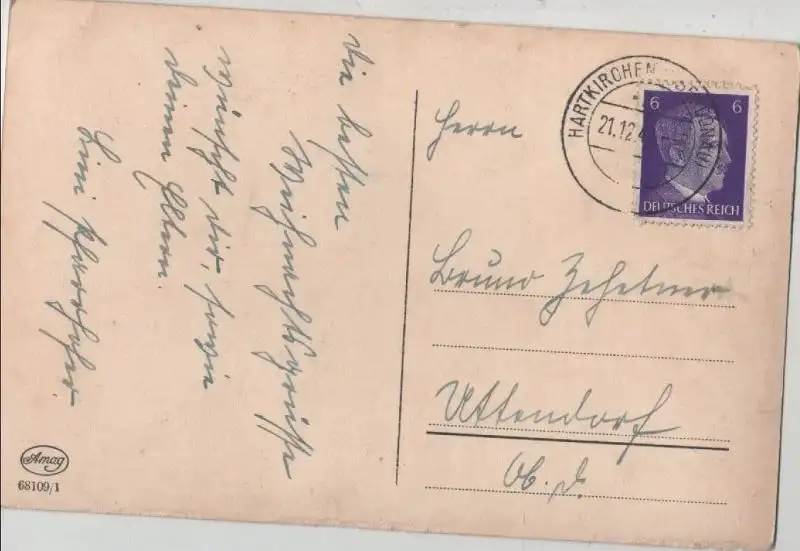 Die besten
Weihnachtsgrüsse
wünscht dir, sowie
deinen Eltern.
Herrn
Bruno Zehetner
Uttendorf
Ob. d.
HARTKIRCHEN
21.12.4
DONAU
6 6
DEUTSCHES REICH
Amag
68109/1